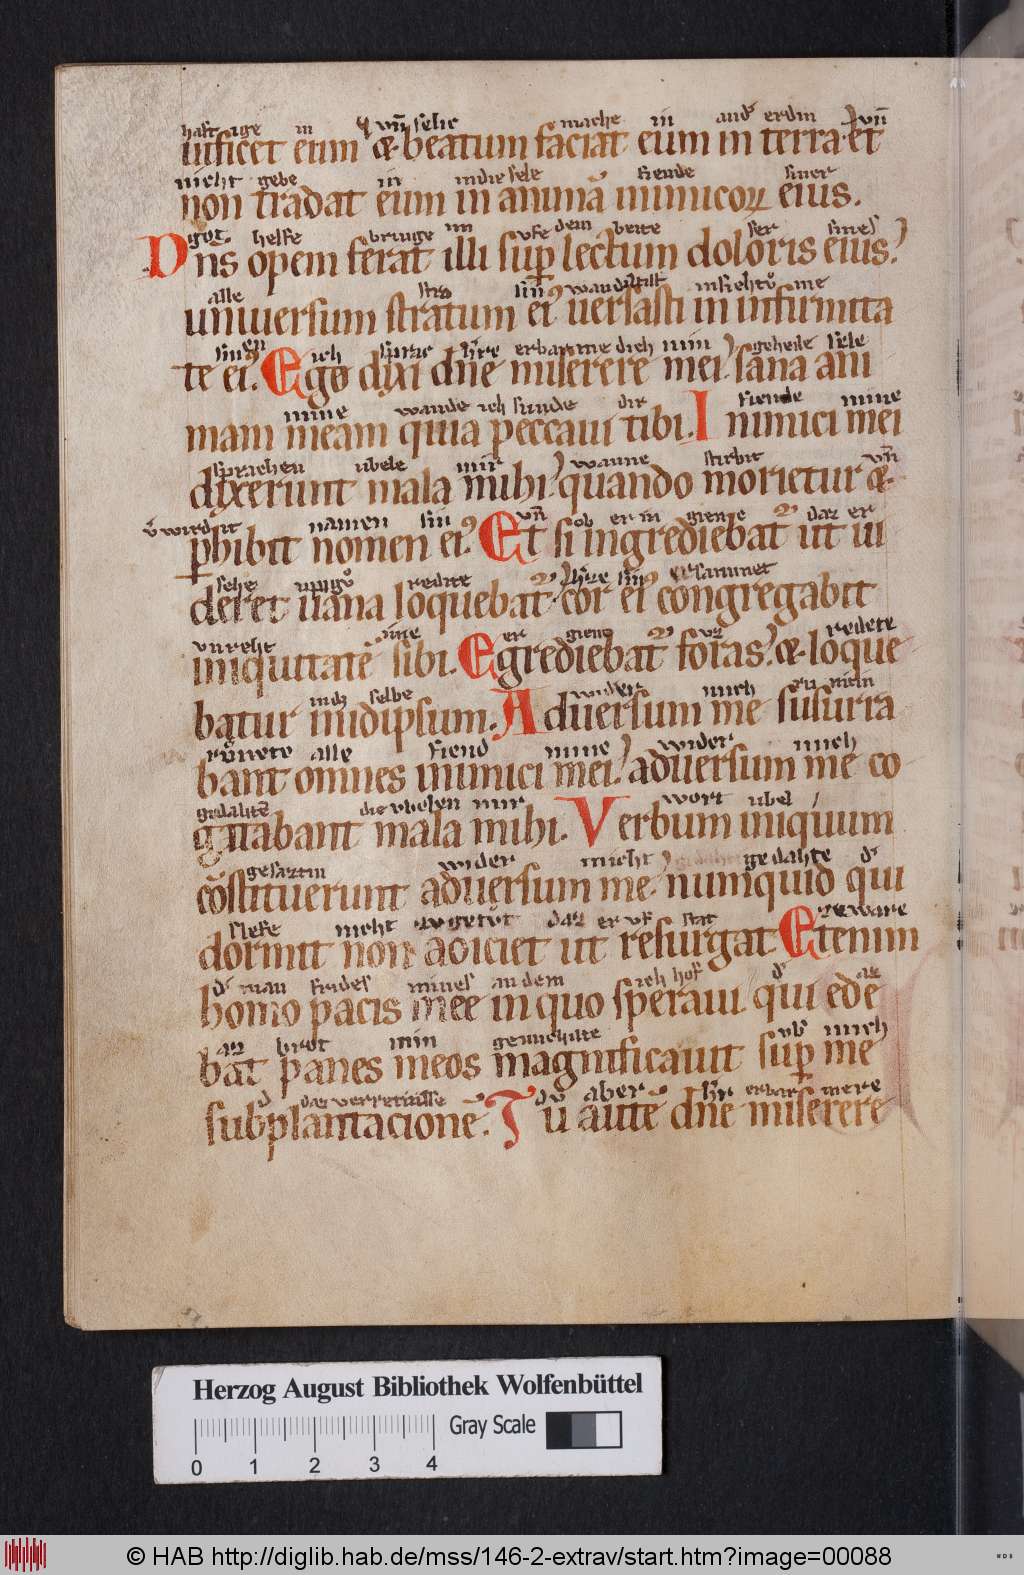 haft ige in vn̄ selic mache in and' erdin vn̄
uificet eum & beatum faciat eum in terra et
nicht gebe in in die sele fiende siner
non tradat eum in animā inimicoꝝ eius.
got helfe bringe im vfe dem bette ser sines
Dn̄s opem ferat illi sup̱ lectum doloris eius
alle stro
uniuersum stratum ei uersasti in infirmita
ich sprac h're erbarme dich min geheile sele
te ei. Ego dixi dn̄e miserere mei sana ani
mine wande ich sunde dir fiende mine
mam meam quia peccaui tibi. Inimici mei
sprachen ubele mir wanne stirbit vn̄
dixerunt mala mihi quando morietur &
namen sin vn̄ ob er in gienc daz er
p̱hibit nomen ei. Et si ingrediebat ut ui
sehe redite
deret uana loquebat cor ei congregabit
vnreht ime er gienc vz redete
iniquitatē sibi. Egrediebat foras & loque
selbe wider mich
batur in idipsum. Aduersum me susurra
alle fiend mine wider mich
bant omnes inimici mei aduersum me co
gedahtē die vbelen mir wort ubel
gitabant mala mihi. Verbum iniquum
gesaztin wider mich gedahte d'
cōstituerunt aduersum me numquid qui
slefe nicht daz er vf stat zeware
dormit non adiciet ut resurgat Etenim
d' man frides mines an dem ich hof d'
homo pacis mee in quo speraui qui edē
az brot min
bat panes meos magnificauit sup̱ me
subplantacionē. Tu autē dn̄e miserere
Herzog August Bibliothek Wolfenbüttel
Gray Scale
0 1 2 3 4
© HAB http://diglib.hab.de/mss/146-2-extrav/start.htm?image=00088